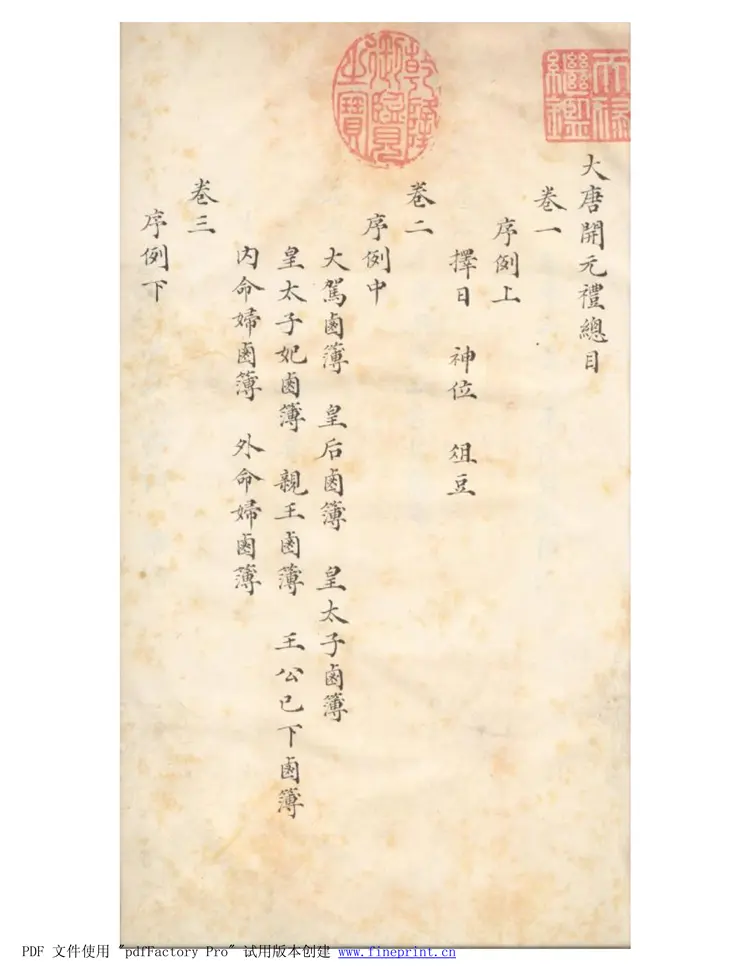 大唐開元禮總目
卷一
序例上
擇日 神位 俎豆
卷二
序例中
大駕鹵簿 皇后鹵簿 皇太子鹵簿
皇太子妃鹵簿 親王鹵簿 王公已下鹵簿
內命婦鹵簿 外命婦鹵簿
卷三
序例下
天祿繼鑑
乾隆御覽之寶
PDF 文件使用 "pdfFactory Pro" 试用版本创建 www.fineprint.cn